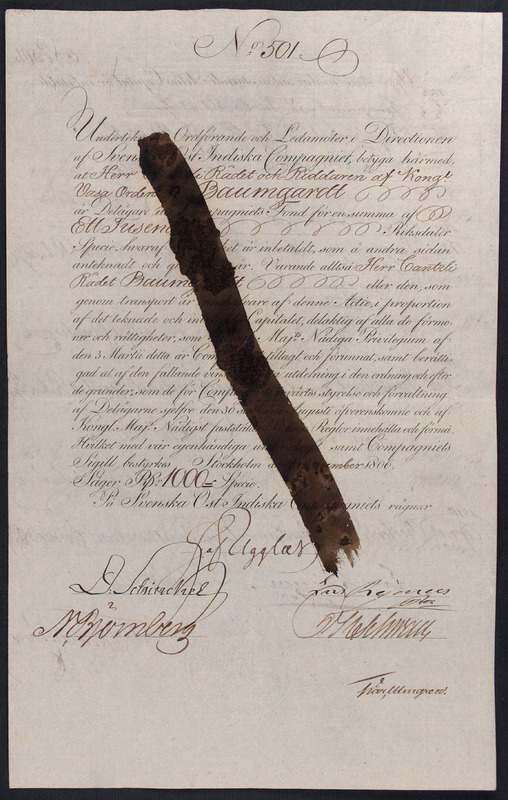 No 501
Underteckn Ordförande och Ledamöter i Directionen
af Svens Ost Indiska Compagniet, betyga härmed,
at Herr Rådet och Riddaren af Kongl.
Vasa Orden Baumgardt
är Delägare i Compagniets Fond för en summa af
Ett Tusen Riksdaler
Specie, hvaraf det är inbetaldt, som å andra sidan
anteknadt och är. Varande alltså Herr Cantzli
Rådet Baum t eller den, som
genom transport är af denne Actie, i proportion
af det teknade och in Capitalet, delaktig af alla de förmo-
ner och rättigheter, som Majts. Nådiga Privilegium af
den 3 Martii detta år Com tillagt och förunnat, samt berätti-
gad at af den fallande vin utdelning i den ordning och efter
de grunder, som de för Comp värets styrelse och förvaltning
af Delägarne sjelfve den 30 sist Augusti öfverenskomne och af
Kongl. Majt. Nådigst faststälte Reglor innehålla och förmå.
Hvilket med vår egenhändiga und samt Compagniets
Sigill bestyrkes Stockholm d ember 1806.
Säger Rdr 1000 Specie.
På Svenska Ost Indiska Compagniets vägnar
af Ugglas
D. Schinckel
N Björnberg